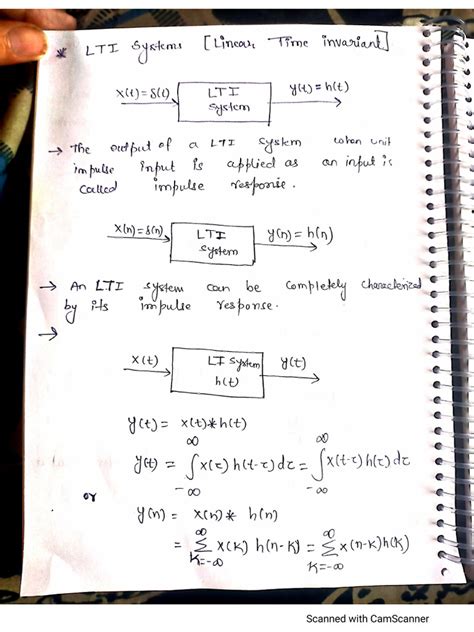 * LTI Systems [Linear Time invariant]
x(t)=δ(t) LTI System y(t)=h(t)
→ The output of a LTI System when unit
impulse input is applied as an input is
called impulse response.
x(n)=δ(n) LTI System y(n)=h(n)
→ An LTI system can be completely characterized
by its impulse response.
→
x(t) LTI System h(t) y(t)
y(t) = x(t)*h(t)
y(t) = ∫_{-∞}^{∞} x(τ) h(t-τ) dτ = ∫_{-∞}^{∞} x(t-τ) h(τ) dτ
or
y(n) = x(n)* h(n)
= ∑_{k=-∞}^{∞} x(k) h(n-k) = ∑_{k=-∞}^{∞} x(n-k)h(k)
Scanned with CamScanner